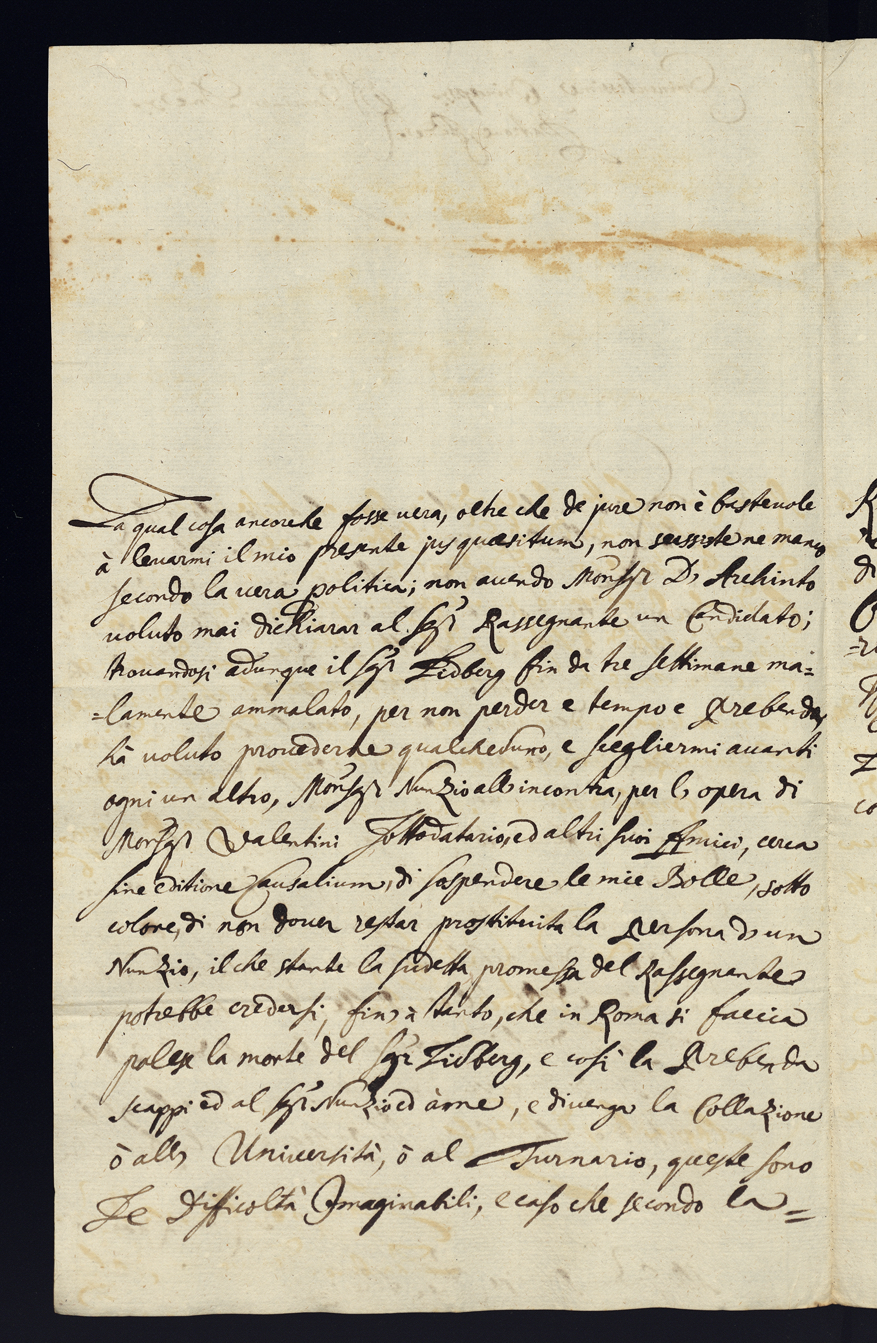 La qual cosa ancorche fosse vera, oltre che de jure non è bastevole
à levarmi il mio presente jus quæsitum, non sussiste ne manco
secondo la vera politica; non avendo Monsgr D'Archinto
voluto mai dichiarar al Sgr Rassegnante un Candidato;
trovandosi adunque il Sgr Lidberg fin da tre settimane ma=
=lamente ammalato, per non perder e tempo e Prebenda,
hà voluto provederne qualcheduno, e scegliermi avanti
ogni un altro, Monsgr Nunzio all'incontra, per l'opera di
Monsgr Valentini Sottodatario, ed altri suoi Amici, cerca
sine editione Causalium, di suspendere le mie Bolle, sotto
colore, di non dover restar prostituita la Persona d'un
Nunzio, il che stante la sudetta promessa del Rassegnante
potrebbe credersi, fin à tanto, che in Roma si faccia
palese la morte del Sgr Lidberg, e cosi la Prebenda
scappi ed al Sgr Nunzio ed à me, e divenga la Collazione
ò all' Università, ò al Turnario, queste sono
Le Difficoltà Imaginabili, e caso che secondo la=
R
di
co